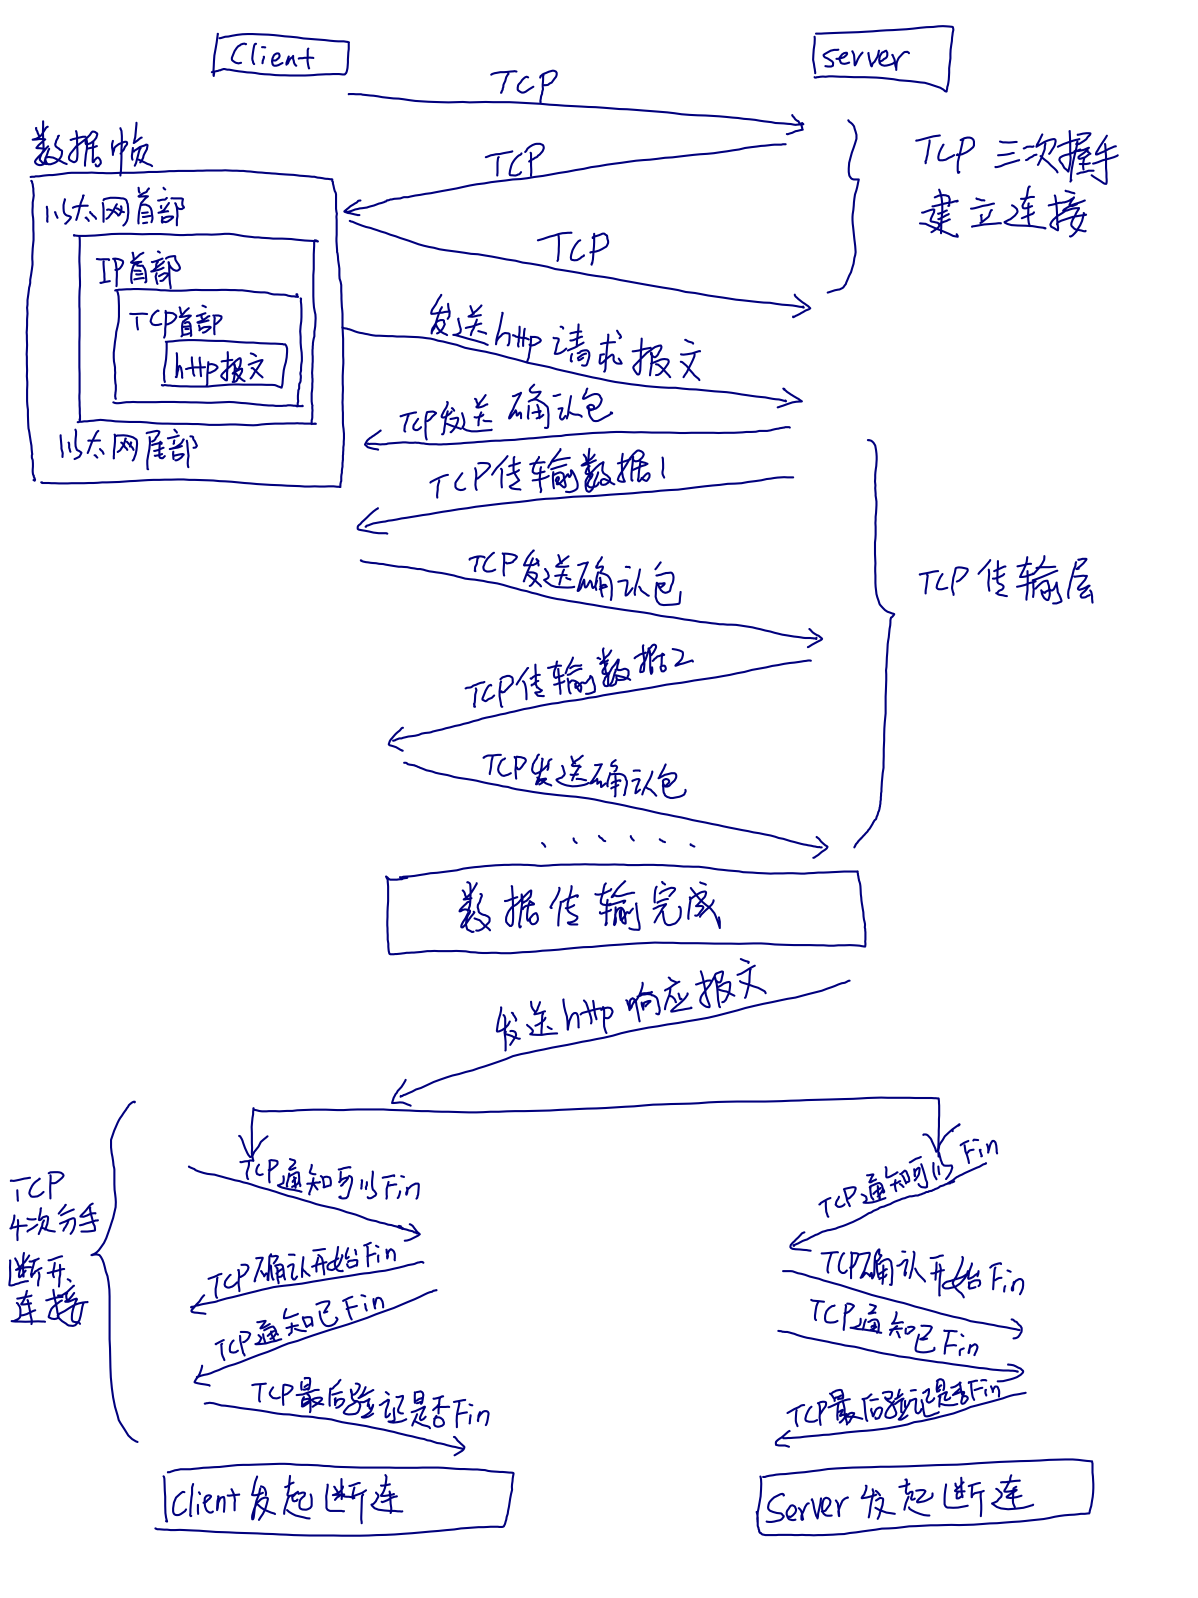 Client
server
TCP
数据帧
TCP
TCP 三次握手
建立连接
以太网首部
TCP
IP首部
TCP首部
http报文
以太网尾部
发送http请求报文
TCP发送确认包
TCP传输数据1
TCP发送确认包
TCP传输层
TCP传输数据2
TCP发送确认包
......
数据传输完成
发送http响应报文
TCP
4次分手
断开
连接
TCP通知可以Fin
TCP确认开始Fin
TCP通知已Fin
TCP最后验证是否Fin
Client发起断连
TCP通知可以Fin
TCP确认开始Fin
TCP通知已Fin
TCP最后验证是否Fin
Server发起断连